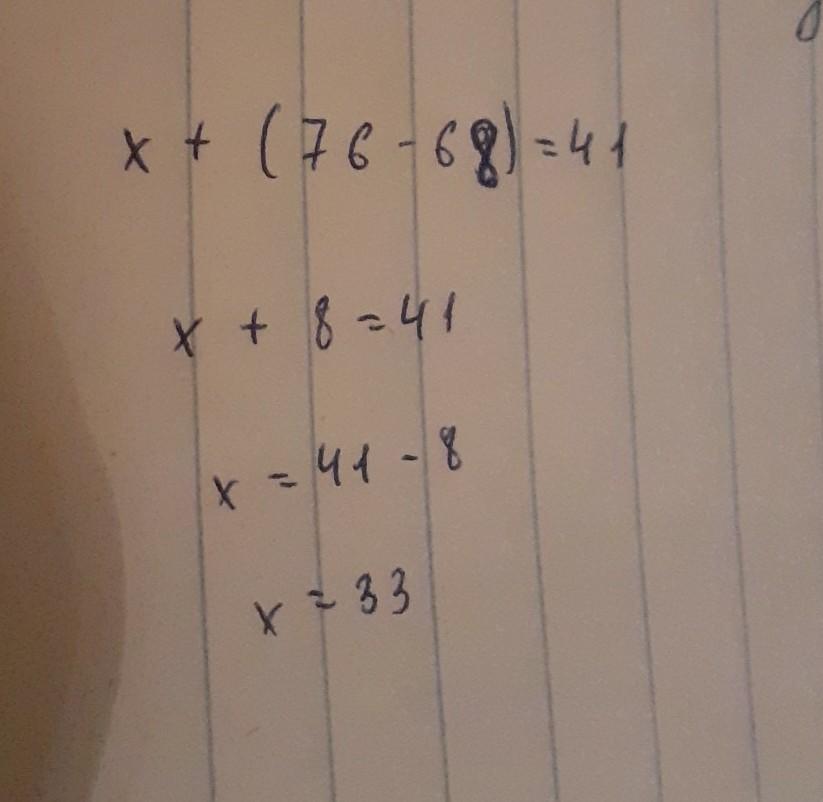 x + (76 - 68) = 41
x + 8 = 41
x = 41 - 8
x = 33